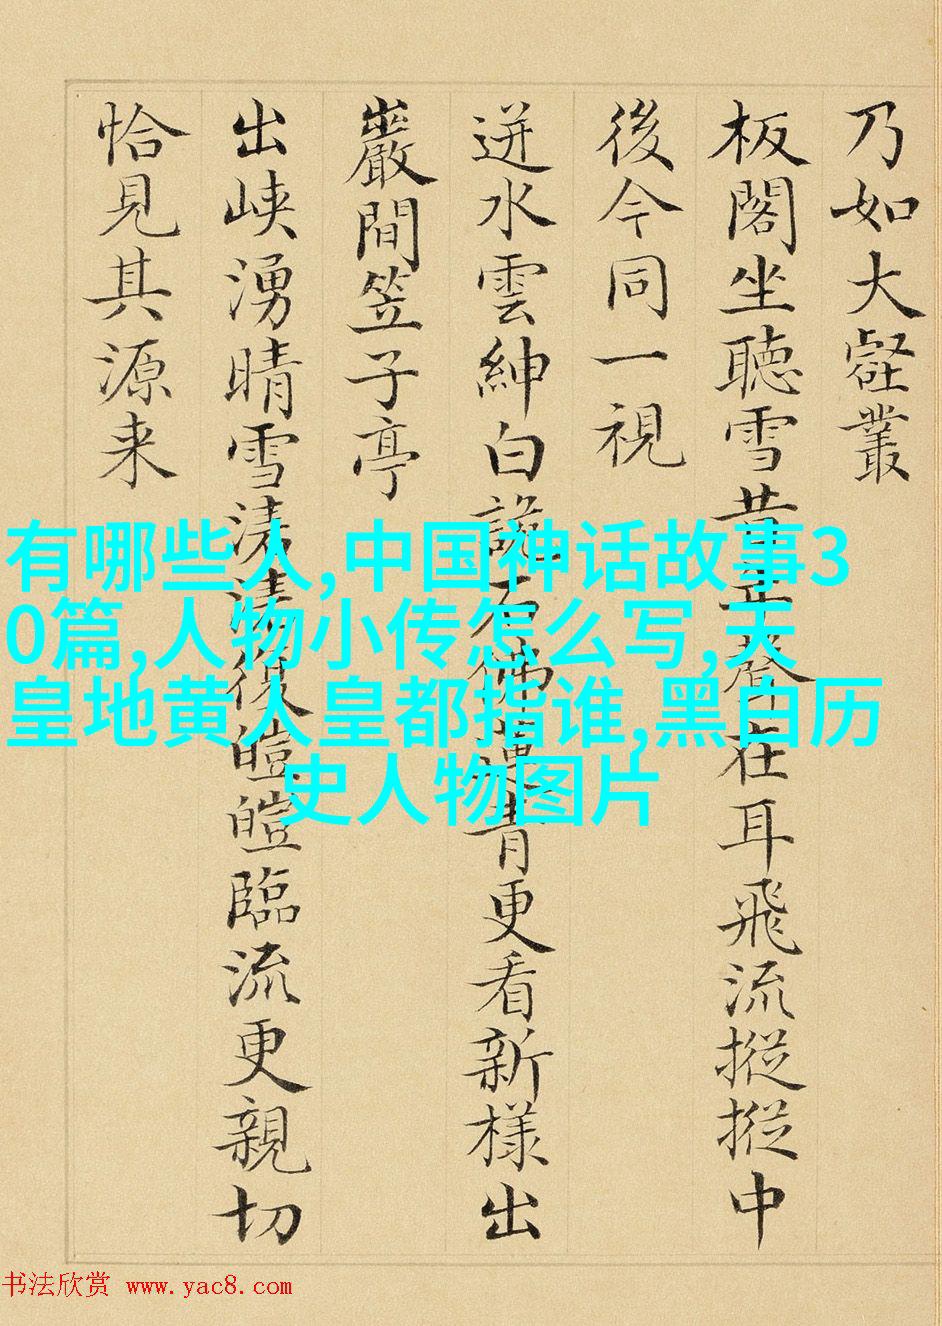 乃如大壑叢
板閣坐聽雪昔年聲在耳飛流摐摐中
後今同一視
迸水雲紳白詭石佛蓮青更看新樣出
巖間笠子亭
出峽湧晴雪復皚皚臨流更親切
恰見其源来
有哪些人,中国神话故事3
0篇,人物小传怎么写,天
皇地黄人皇都指谁,黑白历
史人物图片
书法欣赏 www.yac8.com